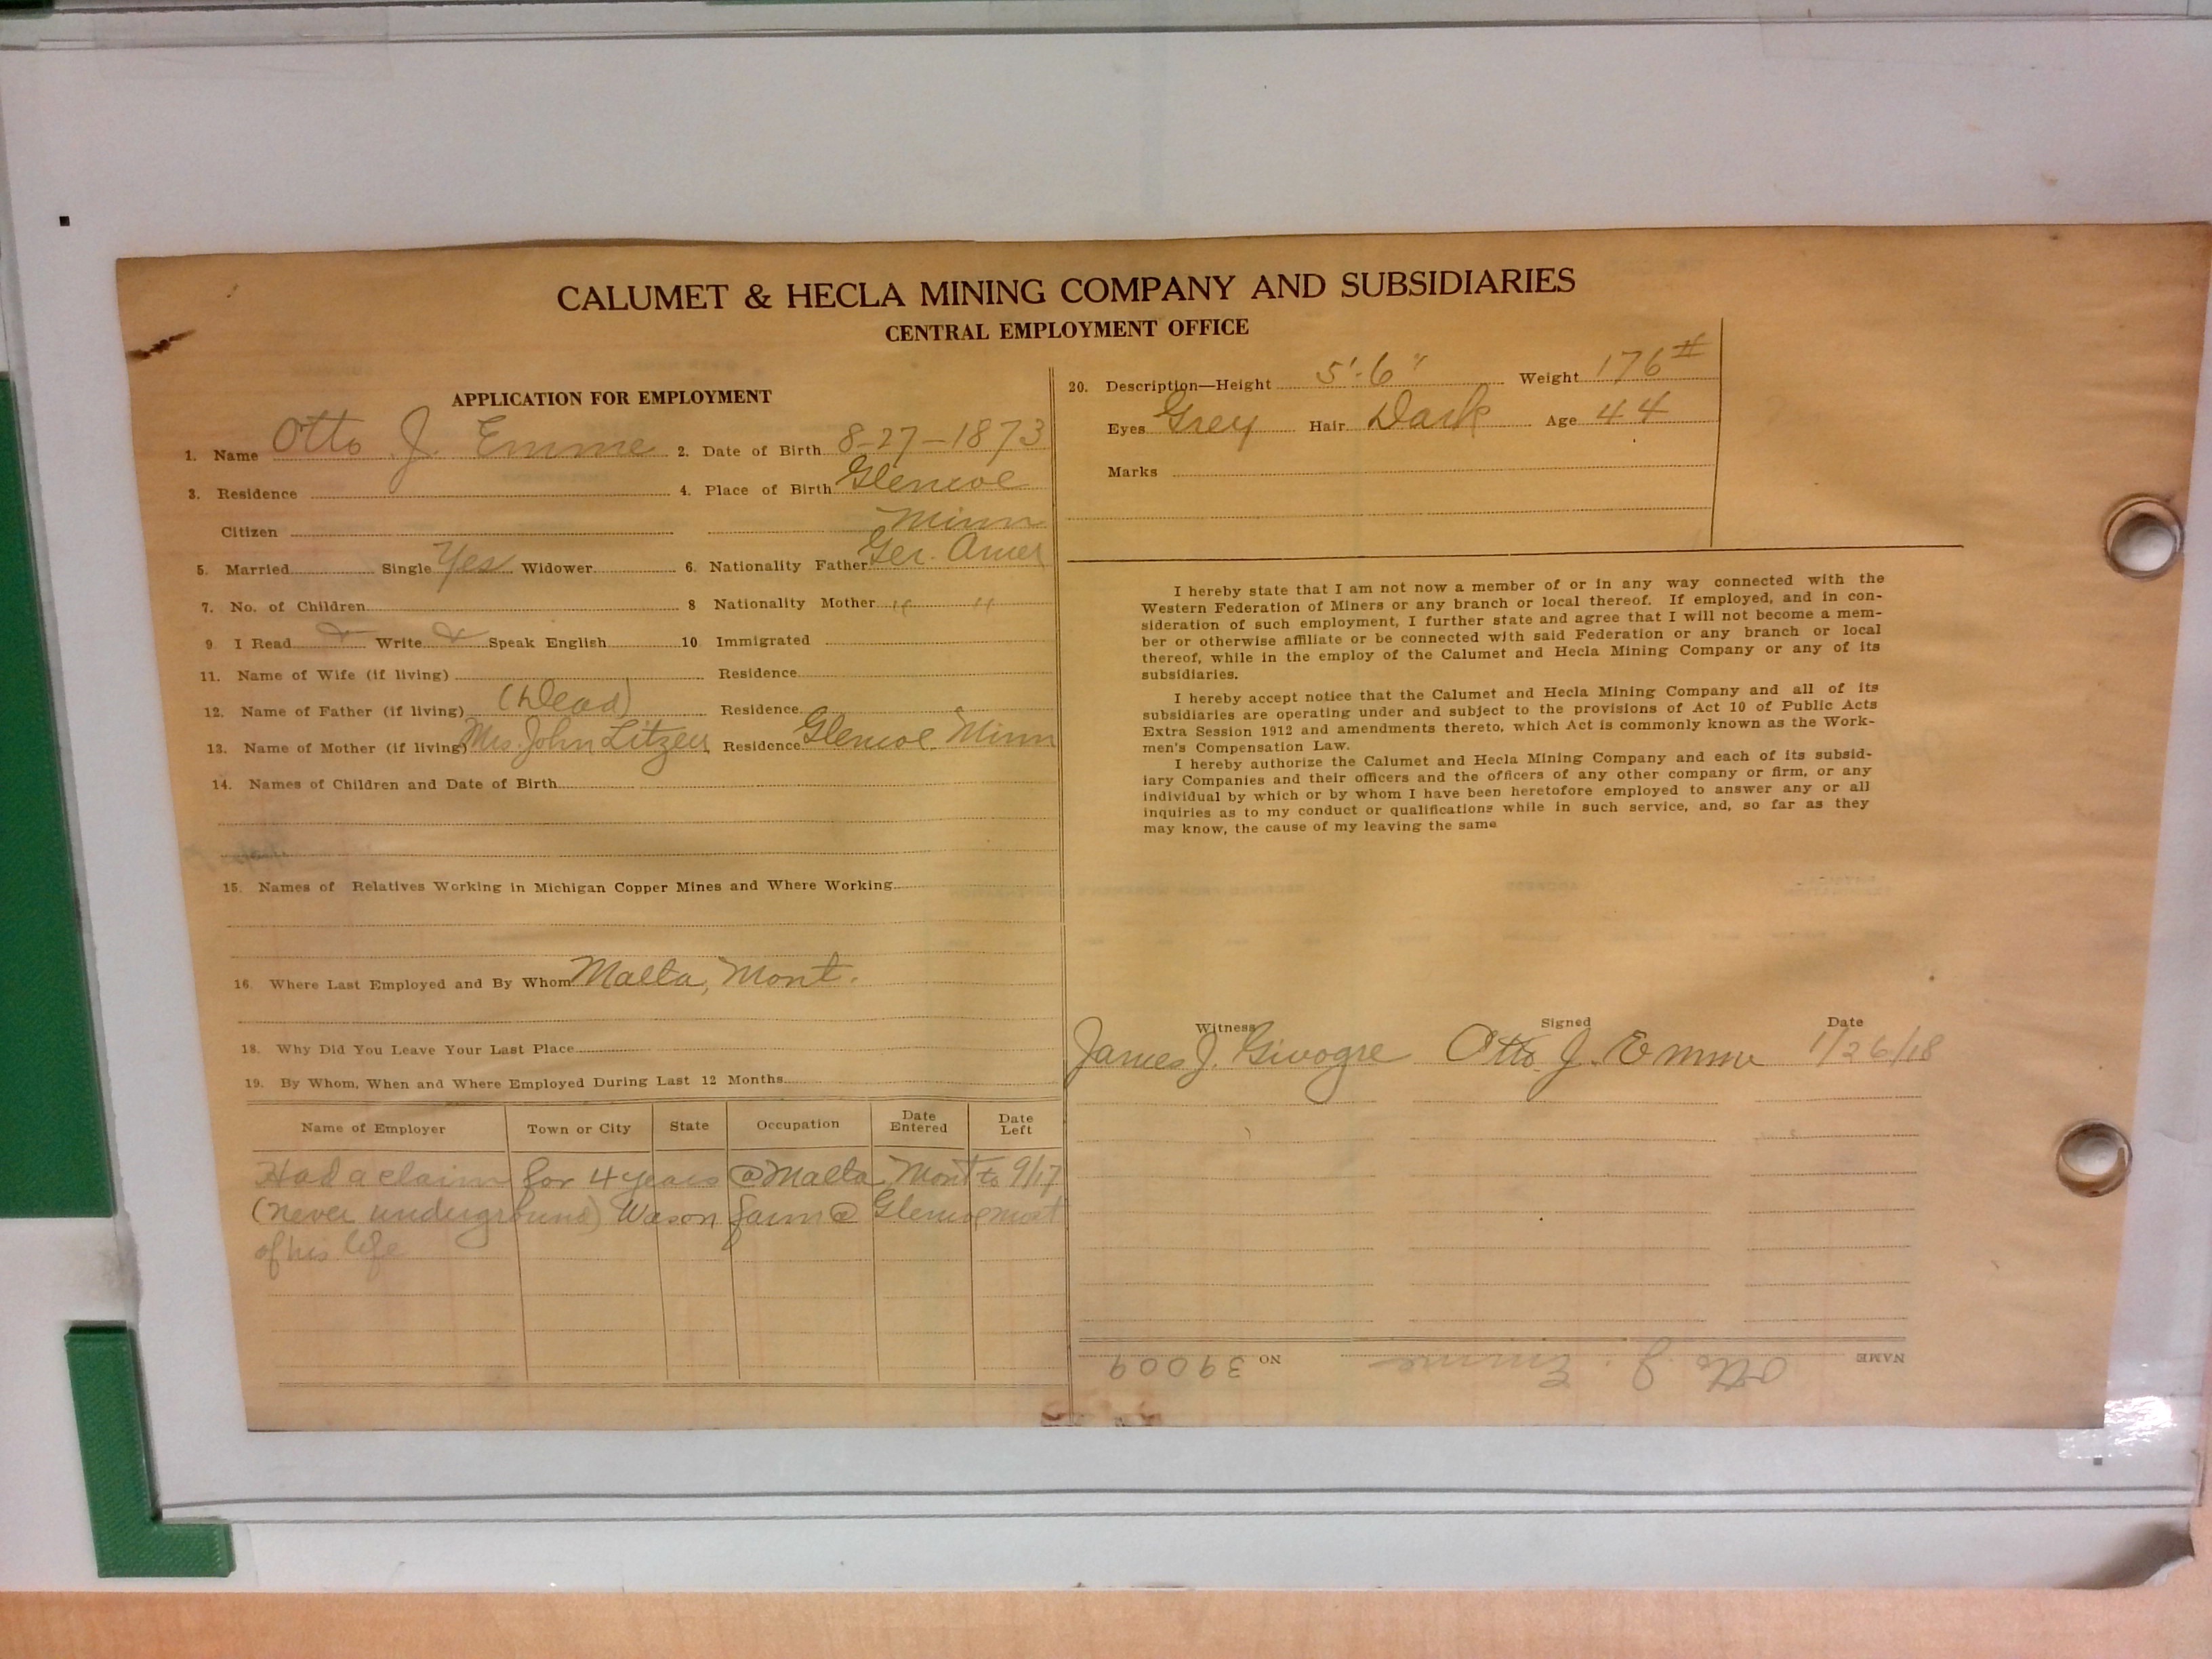 CALUMET & HECLA MINING COMPANY AND SUBSIDIARIES
CENTRAL EMPLOYMENT OFFICE
APPLICATION FOR EMPLOYMENT
1. Name Otto J. Emme 2. Date of Birth 8-27-1873
3. Residence 4. Place of Birth Glencoe
Citizen Minn
5. Married Single Yes Widower 6. Nationality Father Ger. Amer
7. No. of Children 8 Nationality Mother " "
9 I Read Write Speak English 10 Immigrated
11. Name of Wife (if living) Residence
12. Name of Father (if living) (Dead) Residence
13. Name of Mother (if living) Mrs. John Litzen Residence Glencoe Minn
14. Names of Children and Date of Birth
15. Names of Relatives Working in Michigan Copper Mines and Where Working
16. Where Last Employed and By Whom Malta, Mont.
18. Why Did You Leave Your Last Place
19. By Whom, When and Where Employed During Last 12 Months
Name of Employer Town or City State Occupation Date Entered Date Left
Had a claim for 4 years @ Malta Mont to 9/17
(never underground) Was on farm @ Glencoe most
of his life
20. Description—Height 5'-6" Weight 176#
Eyes Grey Hair Dark Age 44
Marks
I hereby state that I am not now a member of or in any way connected with the
Western Federation of Miners or any branch or local thereof. If employed, and in con-
sideration of such employment, I further state and agree that I will not become a mem-
ber or otherwise affiliate or be connected with said Federation or any branch or local
thereof, while in the employ of the Calumet and Hecla Mining Company or any of its
subsidiaries.
I hereby accept notice that the Calumet and Hecla Mining Company and all of its
subsidiaries are operating under and subject to the provisions of Act 10 of Public Acts
Extra Session 1912 and amendments thereto, which Act is commonly known as the Work-
men's Compensation Law.
I hereby authorize the Calumet and Hecla Mining Company and each of its subsid-
iary Companies and their officers and the officers of any other company or firm, or any
individual by which or by whom I have been heretofore employed to answer any or all
inquiries as to my conduct or qualifications while in such service, and, so far as they
may know, the cause of my leaving the same
Witness Signed Date
James J. Otto J. Emme 1/26/18
NAME Otto J. Emme NO 39009